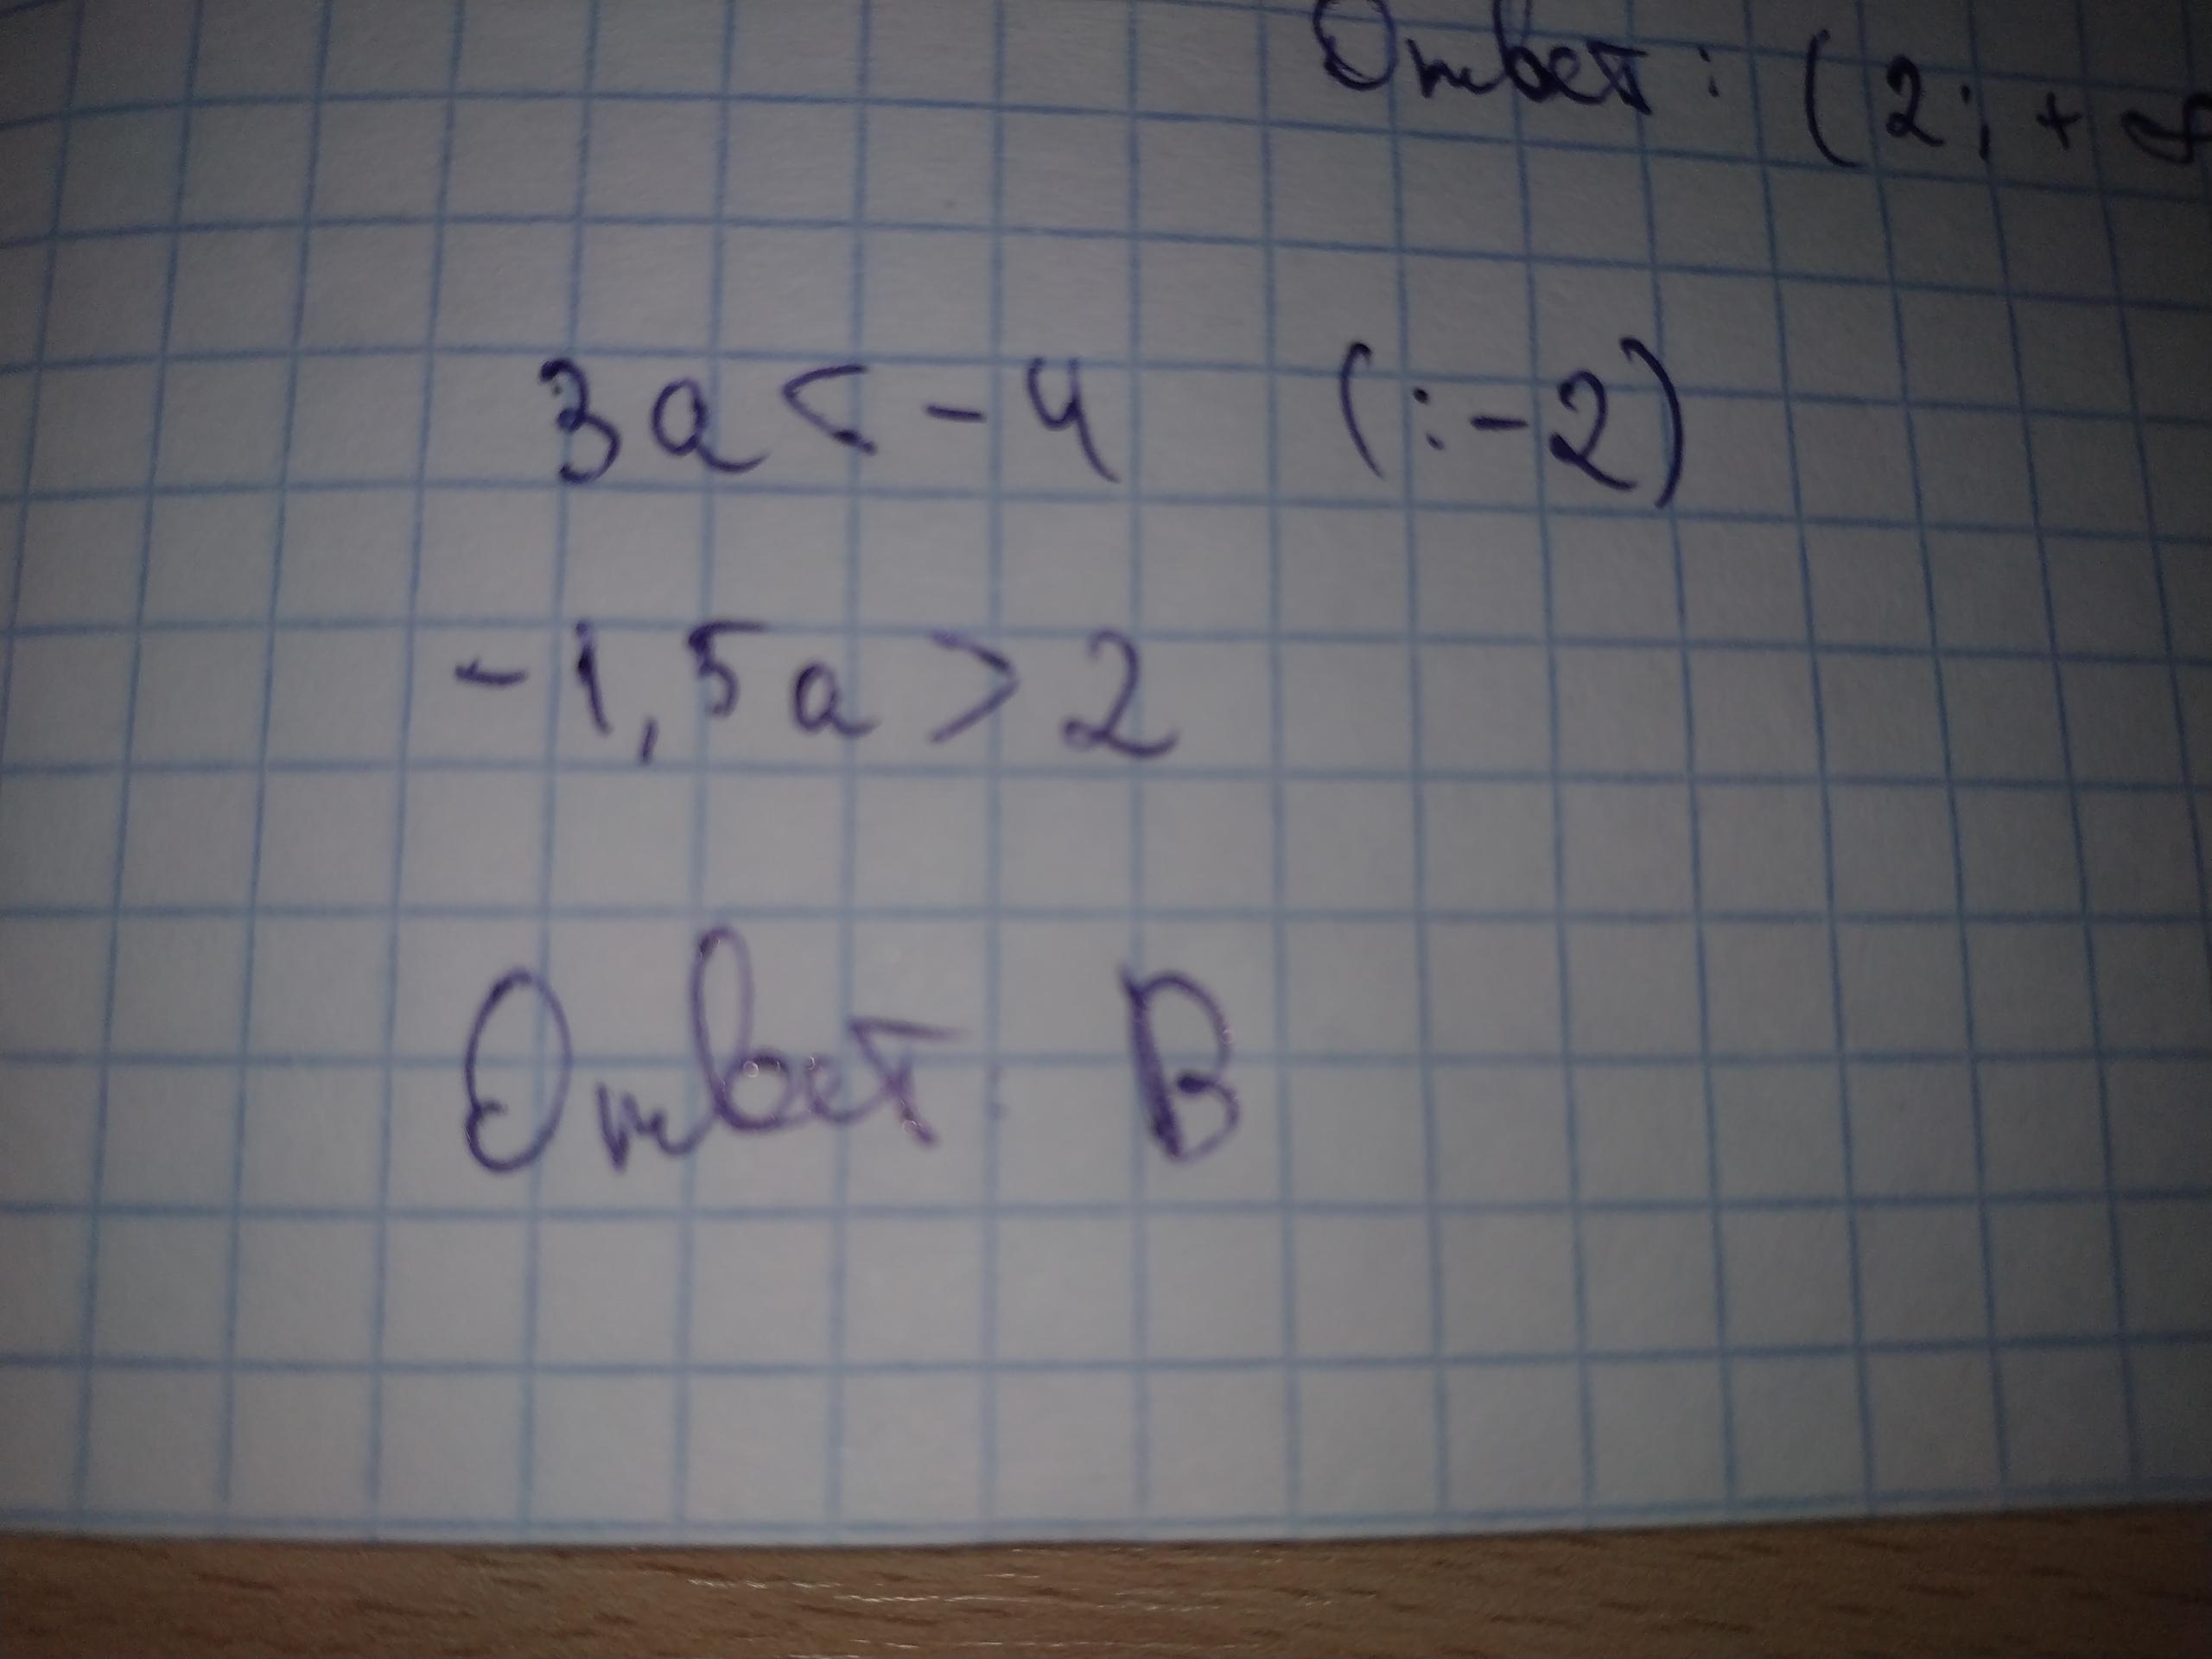 Ответ: (2; + ∞
3a < -4 (:-2)
-1,5a > 2
Ответ: В